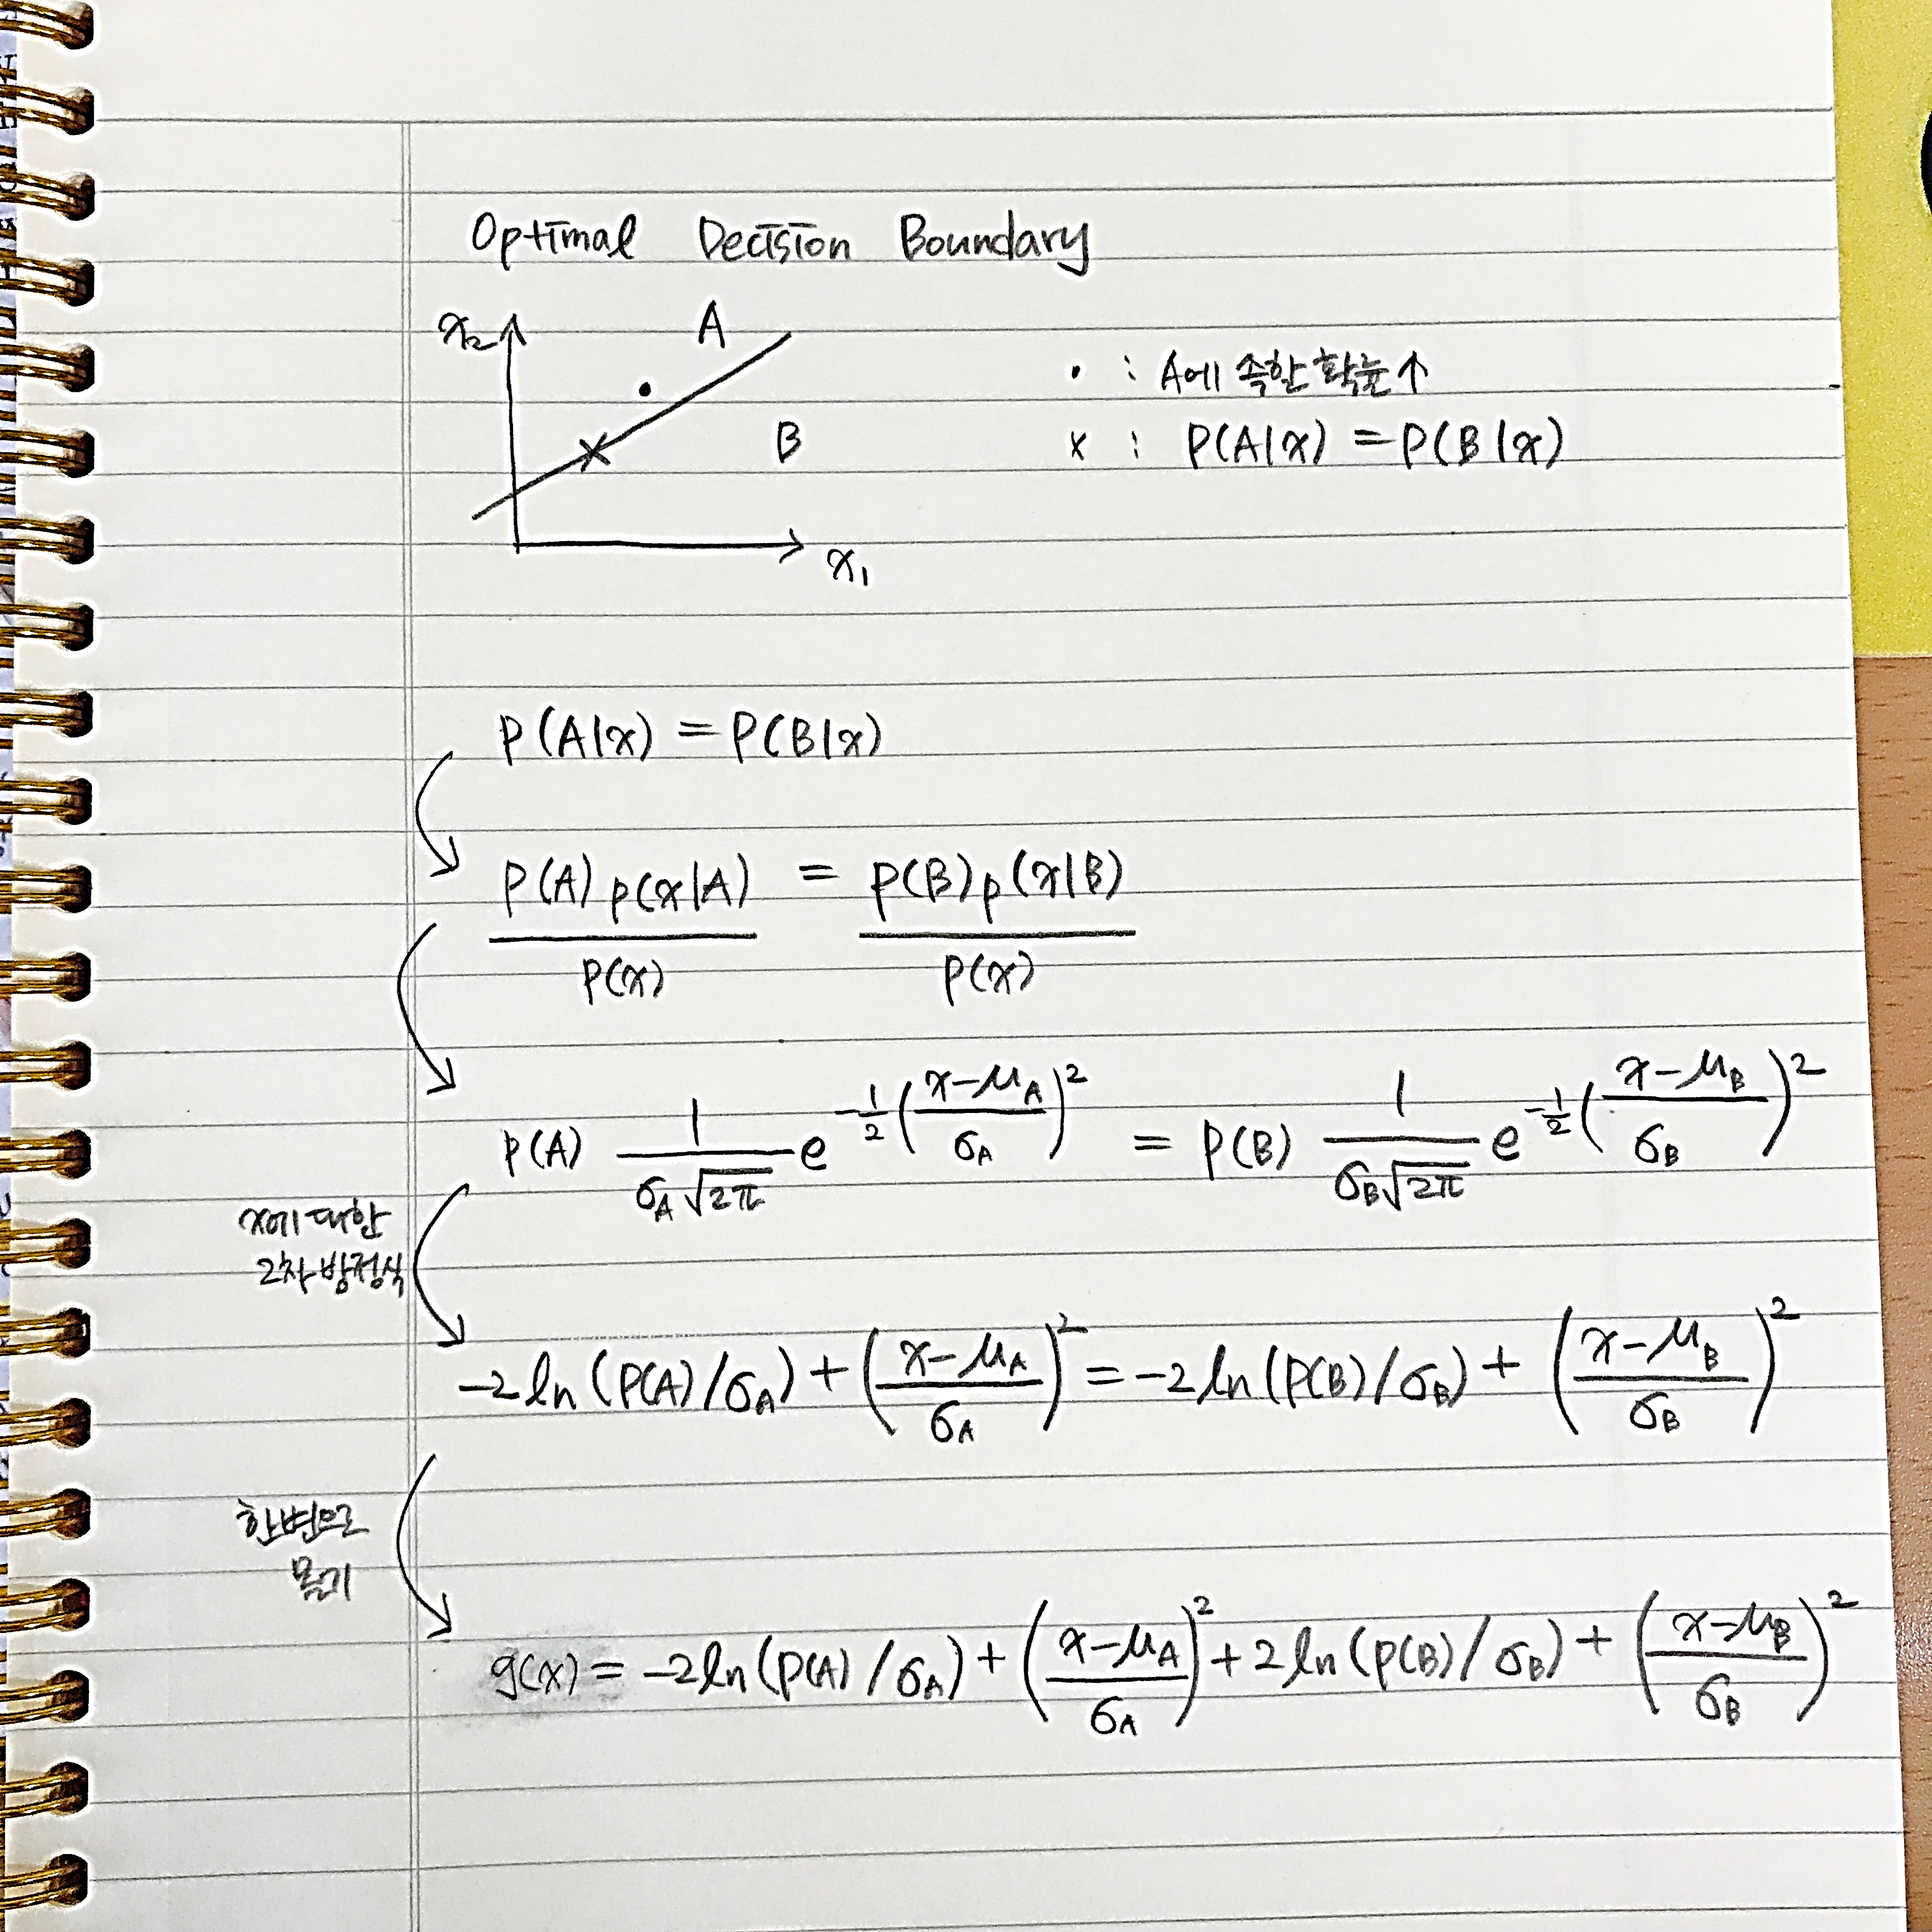 Optimal Decision Boundary
x₂ A
• : A에 속할 확률↑
B
x : P(A|x) = P(B|x)
x₁
P(A|x) = P(B|x)
P(A) p(x|A) / P(x) = P(B) p(x|B) / P(x)
P(A) 1/(σ_A √2π) e^(-1/2 ((x-μ_A)/σ_A)^2) = P(B) 1/(σ_B √2π) e^(-1/2 ((x-μ_B)/σ_B)^2)
x에 대한
2차 방정식
-2 ln (P(A)/σ_A) + ((x-μ_A)/σ_A)^2 = -2 ln (P(B)/σ_B) + ((x-μ_B)/σ_B)^2
한변으로
몰기
g(x) = -2 ln (P(A)/σ_A) + ((x-μ_A)/σ_A)^2 + 2 ln (P(B)/σ_B) + ((x-μ_B)/σ_B)^2